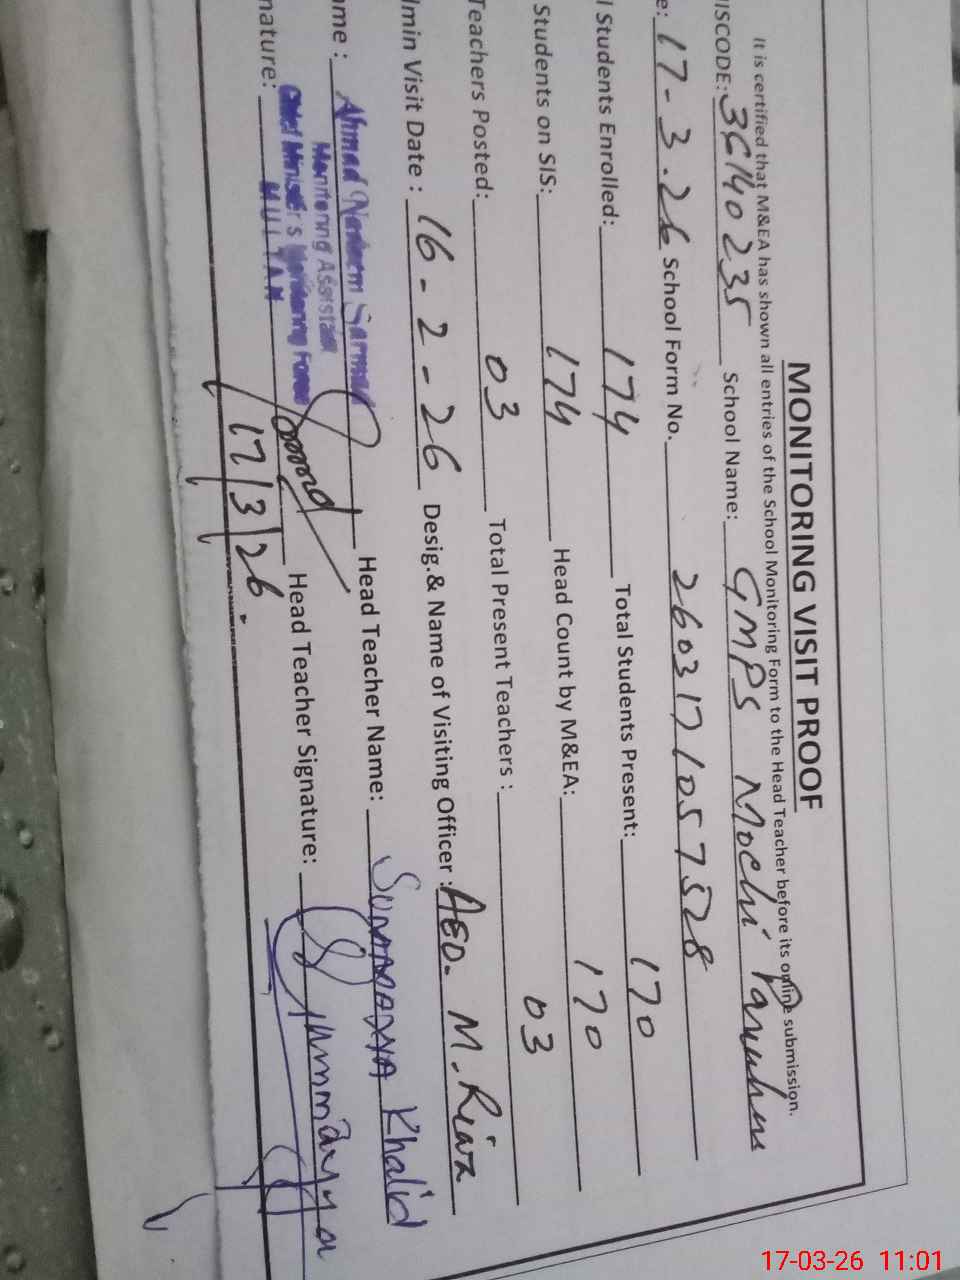 MONITORING VISIT PROOF
It is certified that M&EA has shown all entries of the School Monitoring Form to the Head Teacher before its online submission.
ISCODE: 36140235 School Name: GMPS Mochi
e: 17-3.26 School Form No. 2603171057528
l Students Enrolled: 174 Total Students Present: 170
Students on SIS: 174 Head Count by M&EA: 170
Teachers Posted: 03 Total Present Teachers : 03
lmin Visit Date : 16-2-26 Desig.& Name of Visiting Officer : AEO. M. Riaz
ame : Ahmad Nadeem Sarmad Head Teacher Name: SUMMAYYA Khalid
Monitoring Assistant
Chief Minister's Monitoring Force
MULTAN
nature: Head Teacher Signature: Summayya
17/3/26.
17-03-26 11:01